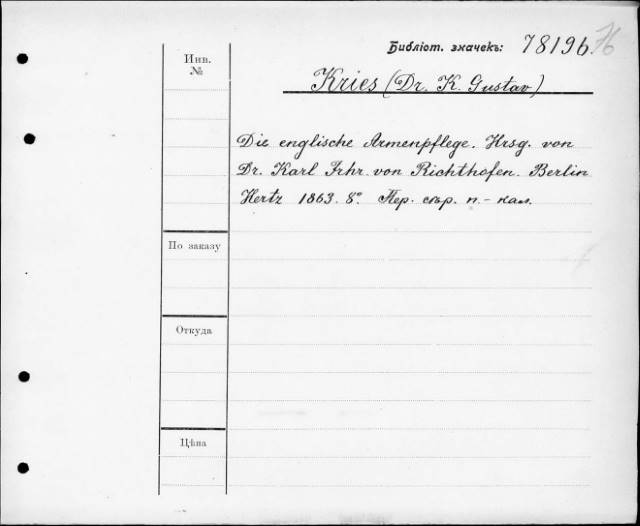 Библіот. значекъ: 78196. 76
Инв. №
Kries (Dr. K. Gustav)
Die englische Armenpflege. Hrsg. von
Dr. Karl Frhr. von Richthofen. Berlin
Hertz 1863. 8º. Пер. сър. п. - кал.
По заказу
Откуда
Цѣна